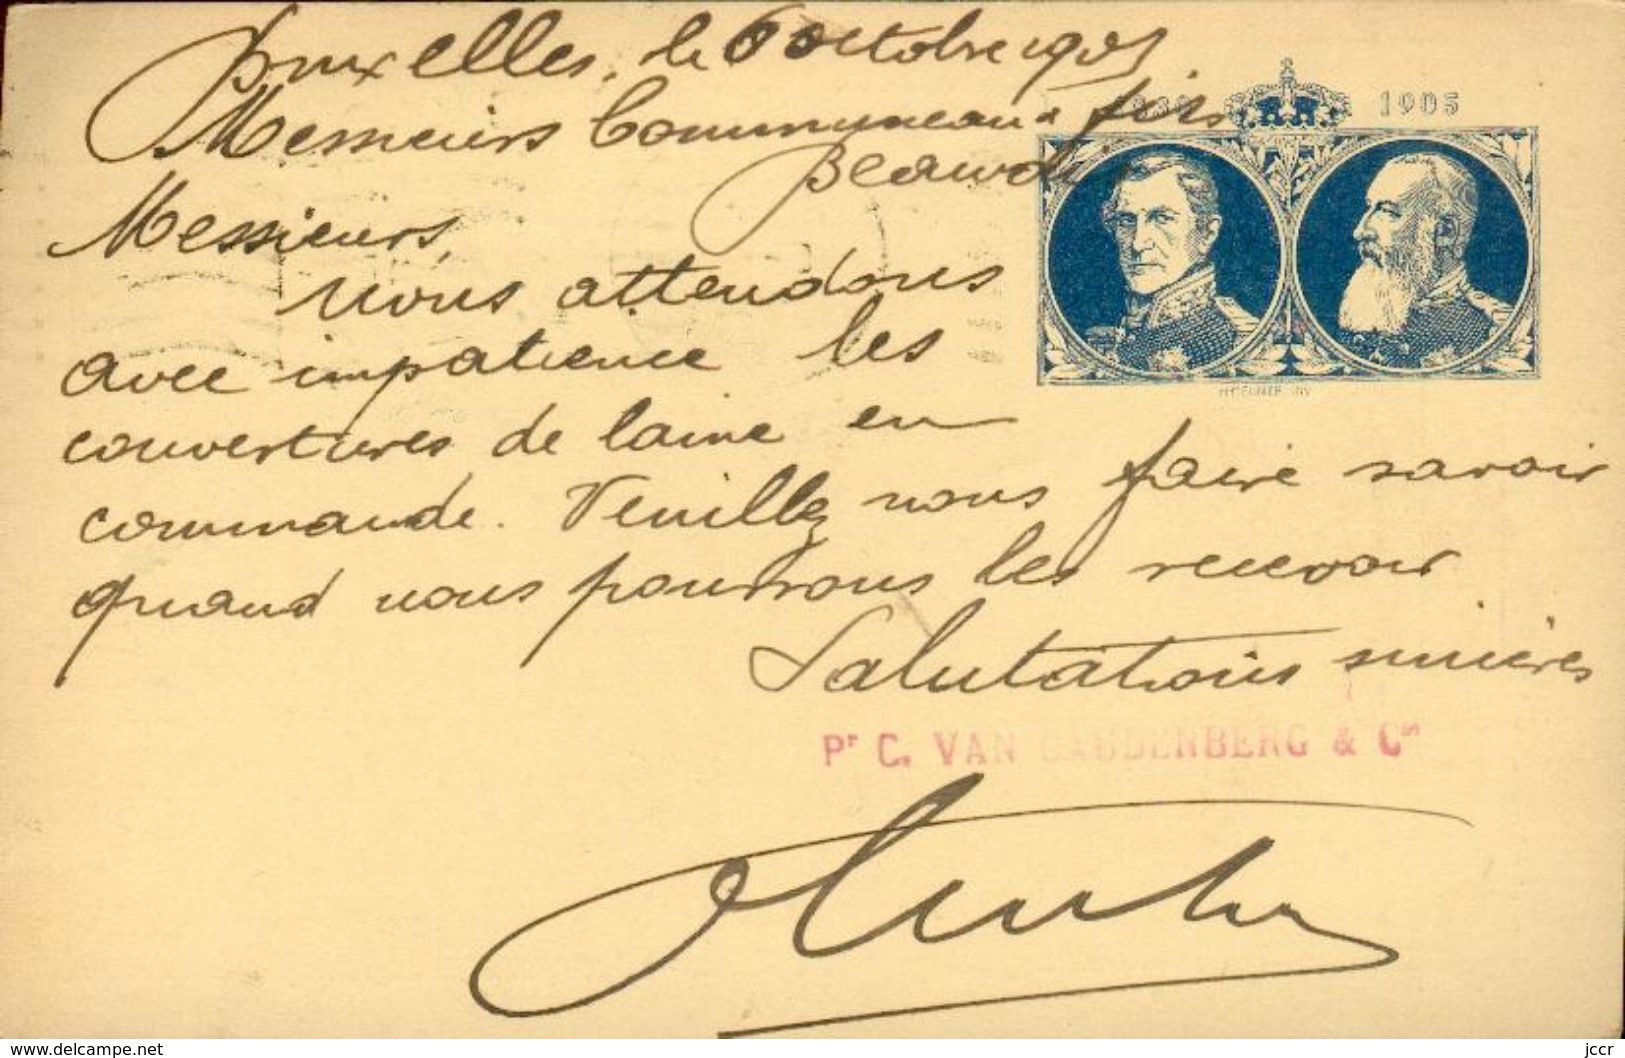 Bruxelles, le 6 octobre 1905
Messieurs Communeaux fils
1830 1905
Beauvais
Messieurs,
nous attendons
avec impatience les
couvertures de laine en
commande. Veuillez nous faire savoir
quand nous pourrons les recevoir
Salutations sincères
Pr C. VAN CAUDENBERG & Cie
www.delcampe.net
jccr